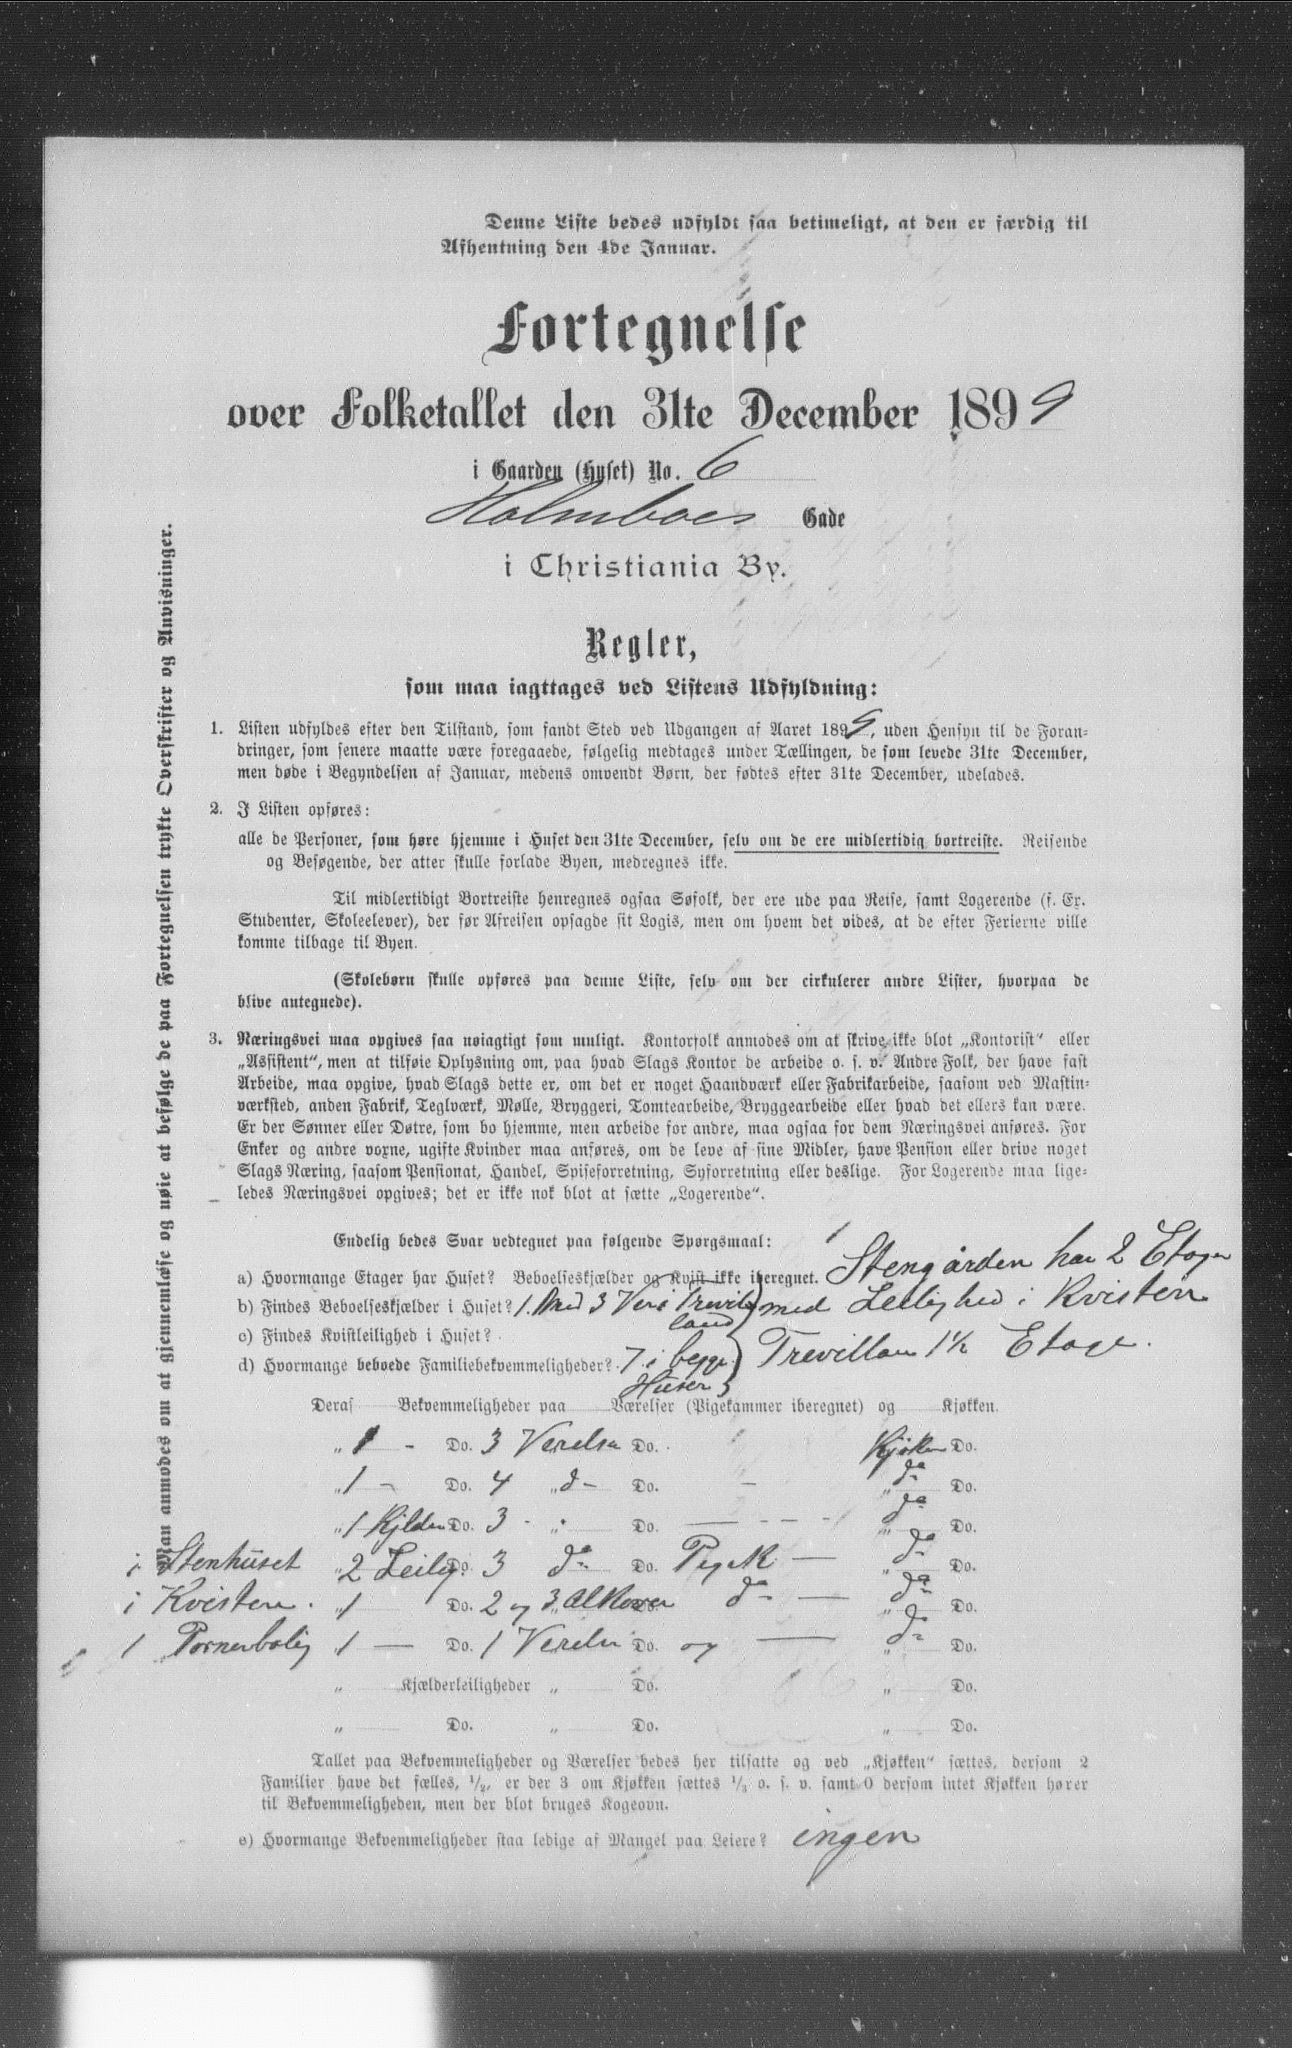 Denne Liste bedes udfyldt saa betimeligt, at den er færdig til
Afhentning den 4de Januar.
Fortegnelse
over Folketallet den 31te December 1899
i Gaarden (Huset) No. 6
Holmboes Gade
i Christiania By.
Regler,
som maa iagttages ved Listens Udfyldning:
1. Listen udfyldes efter den Tilstand, som fandt Sted ved Udgangen af Aaret 1899, uden Hensyn til de Foran-
dringer, som senere maatte være foregaaede, følgelig medtages under Tællingen, de som levede 31te December,
men døde i Begyndelsen af Januar, medens omvendt Børn, der fødtes efter 31te December, udelades.
2. I Listen opføres:
alle de Personer, som høre hjemme i Huset den 31te December, selv om de ere midlertidig bortreiste. Reisende
og Besøgende, der atter skulle forlade Byen, medregnes ikke.
Til midlertidigt Bortreiste henregnes ogsaa Søfolk, der ere ude paa Reise, samt Logerende (f. Ex.
Studenter, Skoleelever), der før Afreisen opsagde sit Logis, men om hvem det vides, at de efter Ferierne ville
komme tilbage til Byen.
(Skolebørn skulle opføres paa denne Liste, selv om der cirkulerer andre Lister, hvorpaa de
blive antegnede).
3. Næringsvei maa opgives saa nøiagtigt som muligt. Kontorfolk anmodes om at skrive ikke blot „Kontorist" eller
„Assistent", men at tilføie Oplysning om, paa hvad Slags Kontor de arbeide o. s. v. Andre Folk, der have fast
Arbeide, maa opgive, hvad Slags dette er, om det er noget Haandværk eller Fabrikarbeide, saasom ved Maskin-
værksted, anden Fabrik, Teglværk, Mølle, Bryggeri, Tomtearbeide, Bryggearbeide eller hvad det ellers kan være.
Er der Sønner eller Døtre, som bo hjemme, men arbeide for andre, maa ogsaa for dem Næringsvei anføres. For
Enker og andre voxne, ugifte Kvinder maa anføres, om de leve af sine Midler, have Pension eller drive noget
Slags Næring, saasom Pensionat, Handel, Spiseforretning, Syforretning eller deslige. For Logerende maa lige-
ledes Næringsvei opgives; det er ikke nok blot at sætte „Logerende".
Man anmodes om at gjennemlæse og nøie at befølge de paa Fortegnelsen trykte Overskrifter og Anvisninger.
Endelig bedes Svar vedtegnet paa følgende Spørgsmaal:
a) Hvormange Etager har Huset? Beboelseskjælder og Kvist ikke iberegnet. Stengården har 2 Etager
b) Findes Beboelseskjælder i Huset? 1. Med 3 Ver i med Leilighed i Kvisten
c) Findes Kvistleilighed i Huset?
d) Hvormange beboede Familiebekvemmeligheder? 7 i begge Huser Trevillaen 1½ Etage.
Deraf Bekvemmeligheder paa Værelser (Pigekammer iberegnet) og Kjøkken.
„ 1 - Do. 3 Verelse Do. Kjøken Do.
„ 1 - Do. 4 „ d- Do. - „ do Do.
„ 1 Kjelder Do. 3 - „ Do. - „ do Do.
i Stenhuset „ 2 Leilig. Do. 3 do Do. Pigek - „ do Do.
i Kvisten. „ 1 Do. 2 og 3 Alkover Do. do - „ do Do.
1 Portnerbolig 1 - Do. 1 Verelse Do. og - „ do Do.
„ Kjælderleiligheder „ Do. „ Do.
„ Do. „ Do. „ Do.
Tallet paa Bekvemmeligheder og Værelser bedes her tilsatte og ved „Kjøkken" sættes, dersom 2
Familier have det fælles, 1/2, er der 3 om Kjøkken sættes 1/3 o. s. v. samt 0 dersom intet Kjøkken hører
til Bekvemmeligheden, men der blot bruges Kogeovn.
e) Hvormange Bekvemmeligheder staa ledige af Mangel paa Leiere? ingen